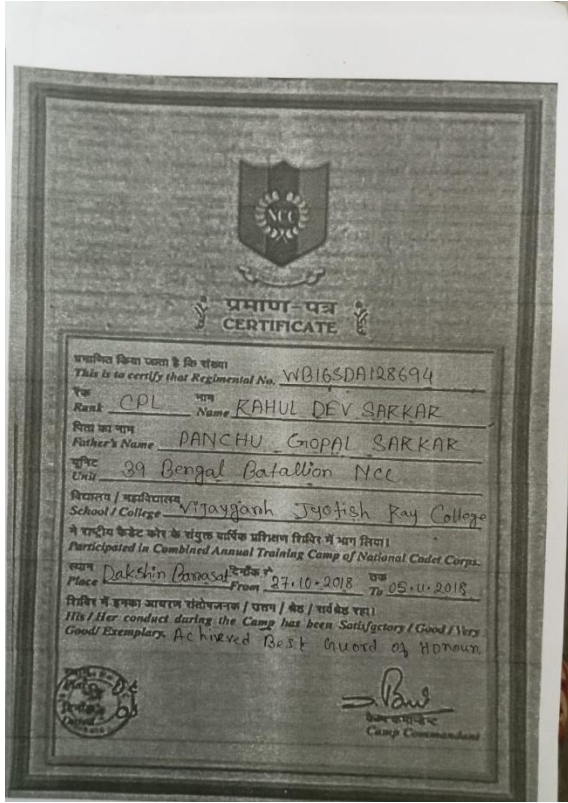 NCC
प्रमाण-पत्र
CERTIFICATE
प्रमाणित किया जाता है कि संख्या
This is to certify that Regimental No. WB16SDA128694
रैंक नाम
Rank CPL Name RAHUL DEV SARKAR
पिता का नाम
Father's Name PANCHU GOPAL SARKAR
यूनिट
Unit 39 Bengal Batallion NCC
विद्यालय / महाविद्यालय
School / College Vijaygarh Jyotish Ray College
ने राष्ट्रीय कैडेट कोर के संयुक्त वार्षिक प्रशिक्षण शिविर में भाग लिया।
Participated in Combined Annual Training Camp of National Cadet Corps.
स्थान दिनाँक से तक
Place Dakshin Barasat From 27.10.2018 To 05.11.2018
शिविर में इनका आचरण संतोषजनक / उत्तम / श्रेष्ठ / सर्वश्रेष्ठ रहा।
His / Her conduct during the Camp has been Satisfactory / Good / Very
Good / Exemplary. Achieved Best Guord of Honour
कैम्प कमाण्डेन्ट
Camp Commandant